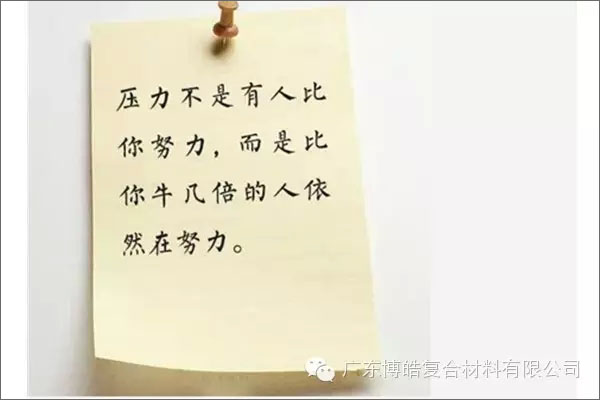 压力不是有人比
你努力，而是比
你牛几倍的人依
然在努力。
广东博皓复合材料有限公司